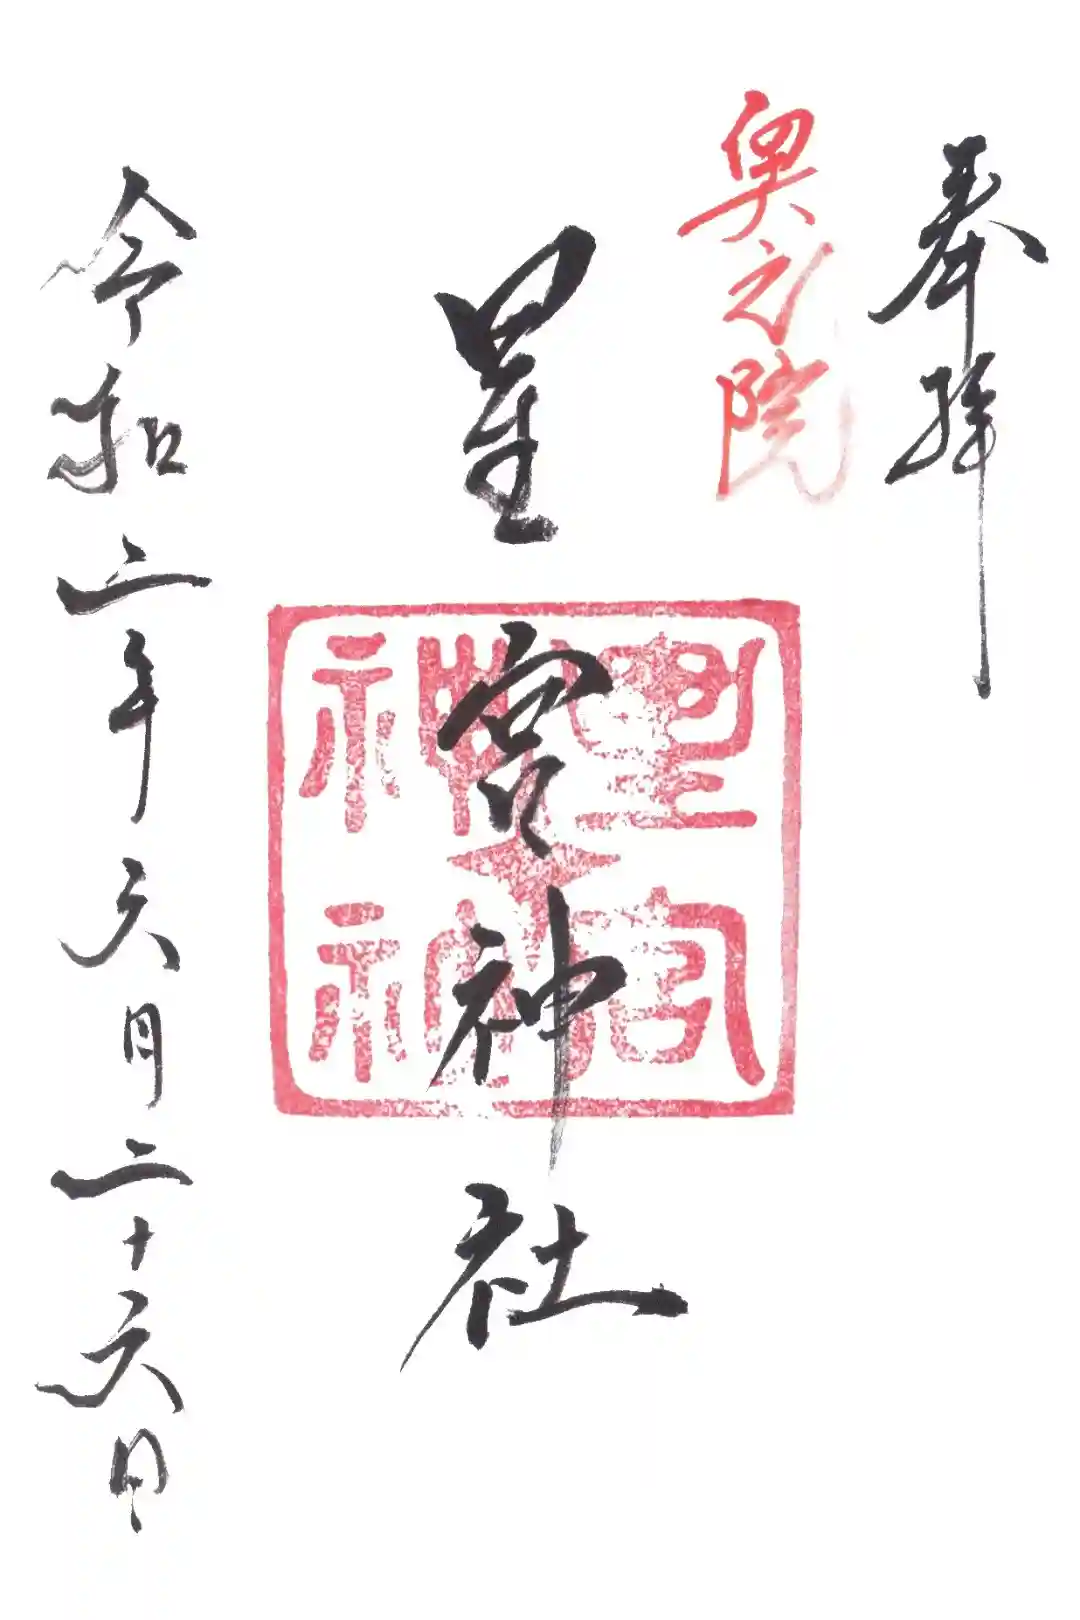 奉拝
奥之院
星宮神社
星宮神社
令和二年六月二十六日